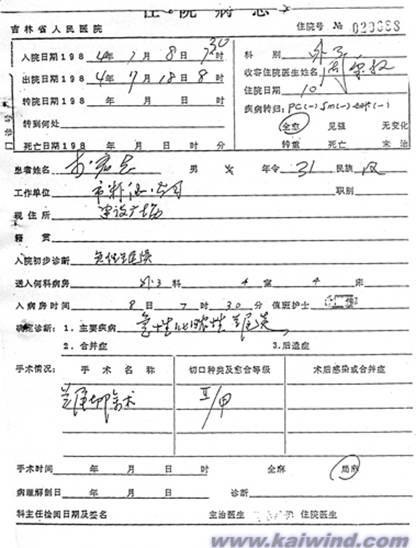 住院病志
吉林省人民医院 住院号 №
入院日期198 4年7月8日7 30时 科别 外3
出院日期198 4年7月18日8时 收容住院医生姓名
转院日期198 年 月 日 时 住院日期 10
门诊号 转到何处 疾病转归:
死亡日期198 年 月 日 时 全愈 见强 无变化
转重 死亡 未治
患者姓名 男 女 年令 31 民族 汉
工作单位 市 公司 职别
现住所 建设广场
籍贯
入院初步诊断 急性阑尾炎
送入何科病房 外3科 4室 4床
入病房时间 8日7时30分 值班护士
确定诊断:1.主要疾病 急性化脓性阑尾炎
2.合并症 3.后遗症
手术情况: 手术名称 切口种类及愈合等级 术后感染或合并症
阑尾切除术 Ⅱ/甲
手术时间 年 月 日 时 全麻 局麻
病理解剖日 年 月 日 诊断
科主任检阅日期及签名 主治医生 住院医生
www.kaiwind.com